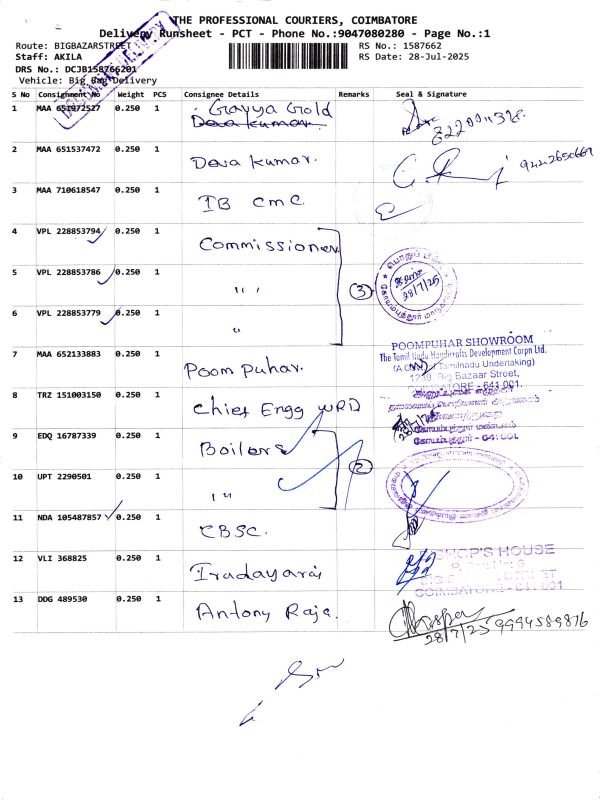 THE PROFESSIONAL COURIERS, COIMBATORE
Delivery Runsheet - PCT - Phone No.:9047080280 - Page No.:1
Route: BIGBAZARSTREET
RS No.: 1587662
Staff: AKILA
RS Date: 28-Jul-2025
DRS No.: DCJB158766201
Vehicle: Big Bag Delivery
S No Consignment No Weight PCS Consignee Details Remarks Seal & Signature
1 MAA 651972527 0.250 1 Gayya Gold
Deva kumar.
822001
2 MAA 651537472 0.250 1 Deva kumar.
9442650669
3 MAA 710618547 0.250 1 IB CMC
4 VPL 228853794 0.250 1 Commissioner
5 VPL 228853786 0.250 1 " "
3
28/7/25
6 VPL 228853779 0.250 1 "
7 MAA 652133883 0.250 1 Poom Puhar.
POOMPUHAR SHOWROOM
The Tamil Nadu Handicrafts Development Corpn Ltd.
Tamilnadu Undertaking)
1239, Big Bazaar Street,
COIMBATORE - 641 001.
8 TRZ 151003150 0.250 1 Chief Engg WRD
கோயம்புத்தூர் - 641001
9 EDQ 16787339 0.250 1 Boilers
2
10 UPT 2290501 0.250 1 " "
11 NDA 105487857 0.250 1 CBSC.
12 VLI 368825 0.250 1 Iradayaraj
BISHOP'S HOUSE
COIMBATORE - 641 001
13 DDG 489530 0.250 1 Antony Raje.
28/7/25 9994589876